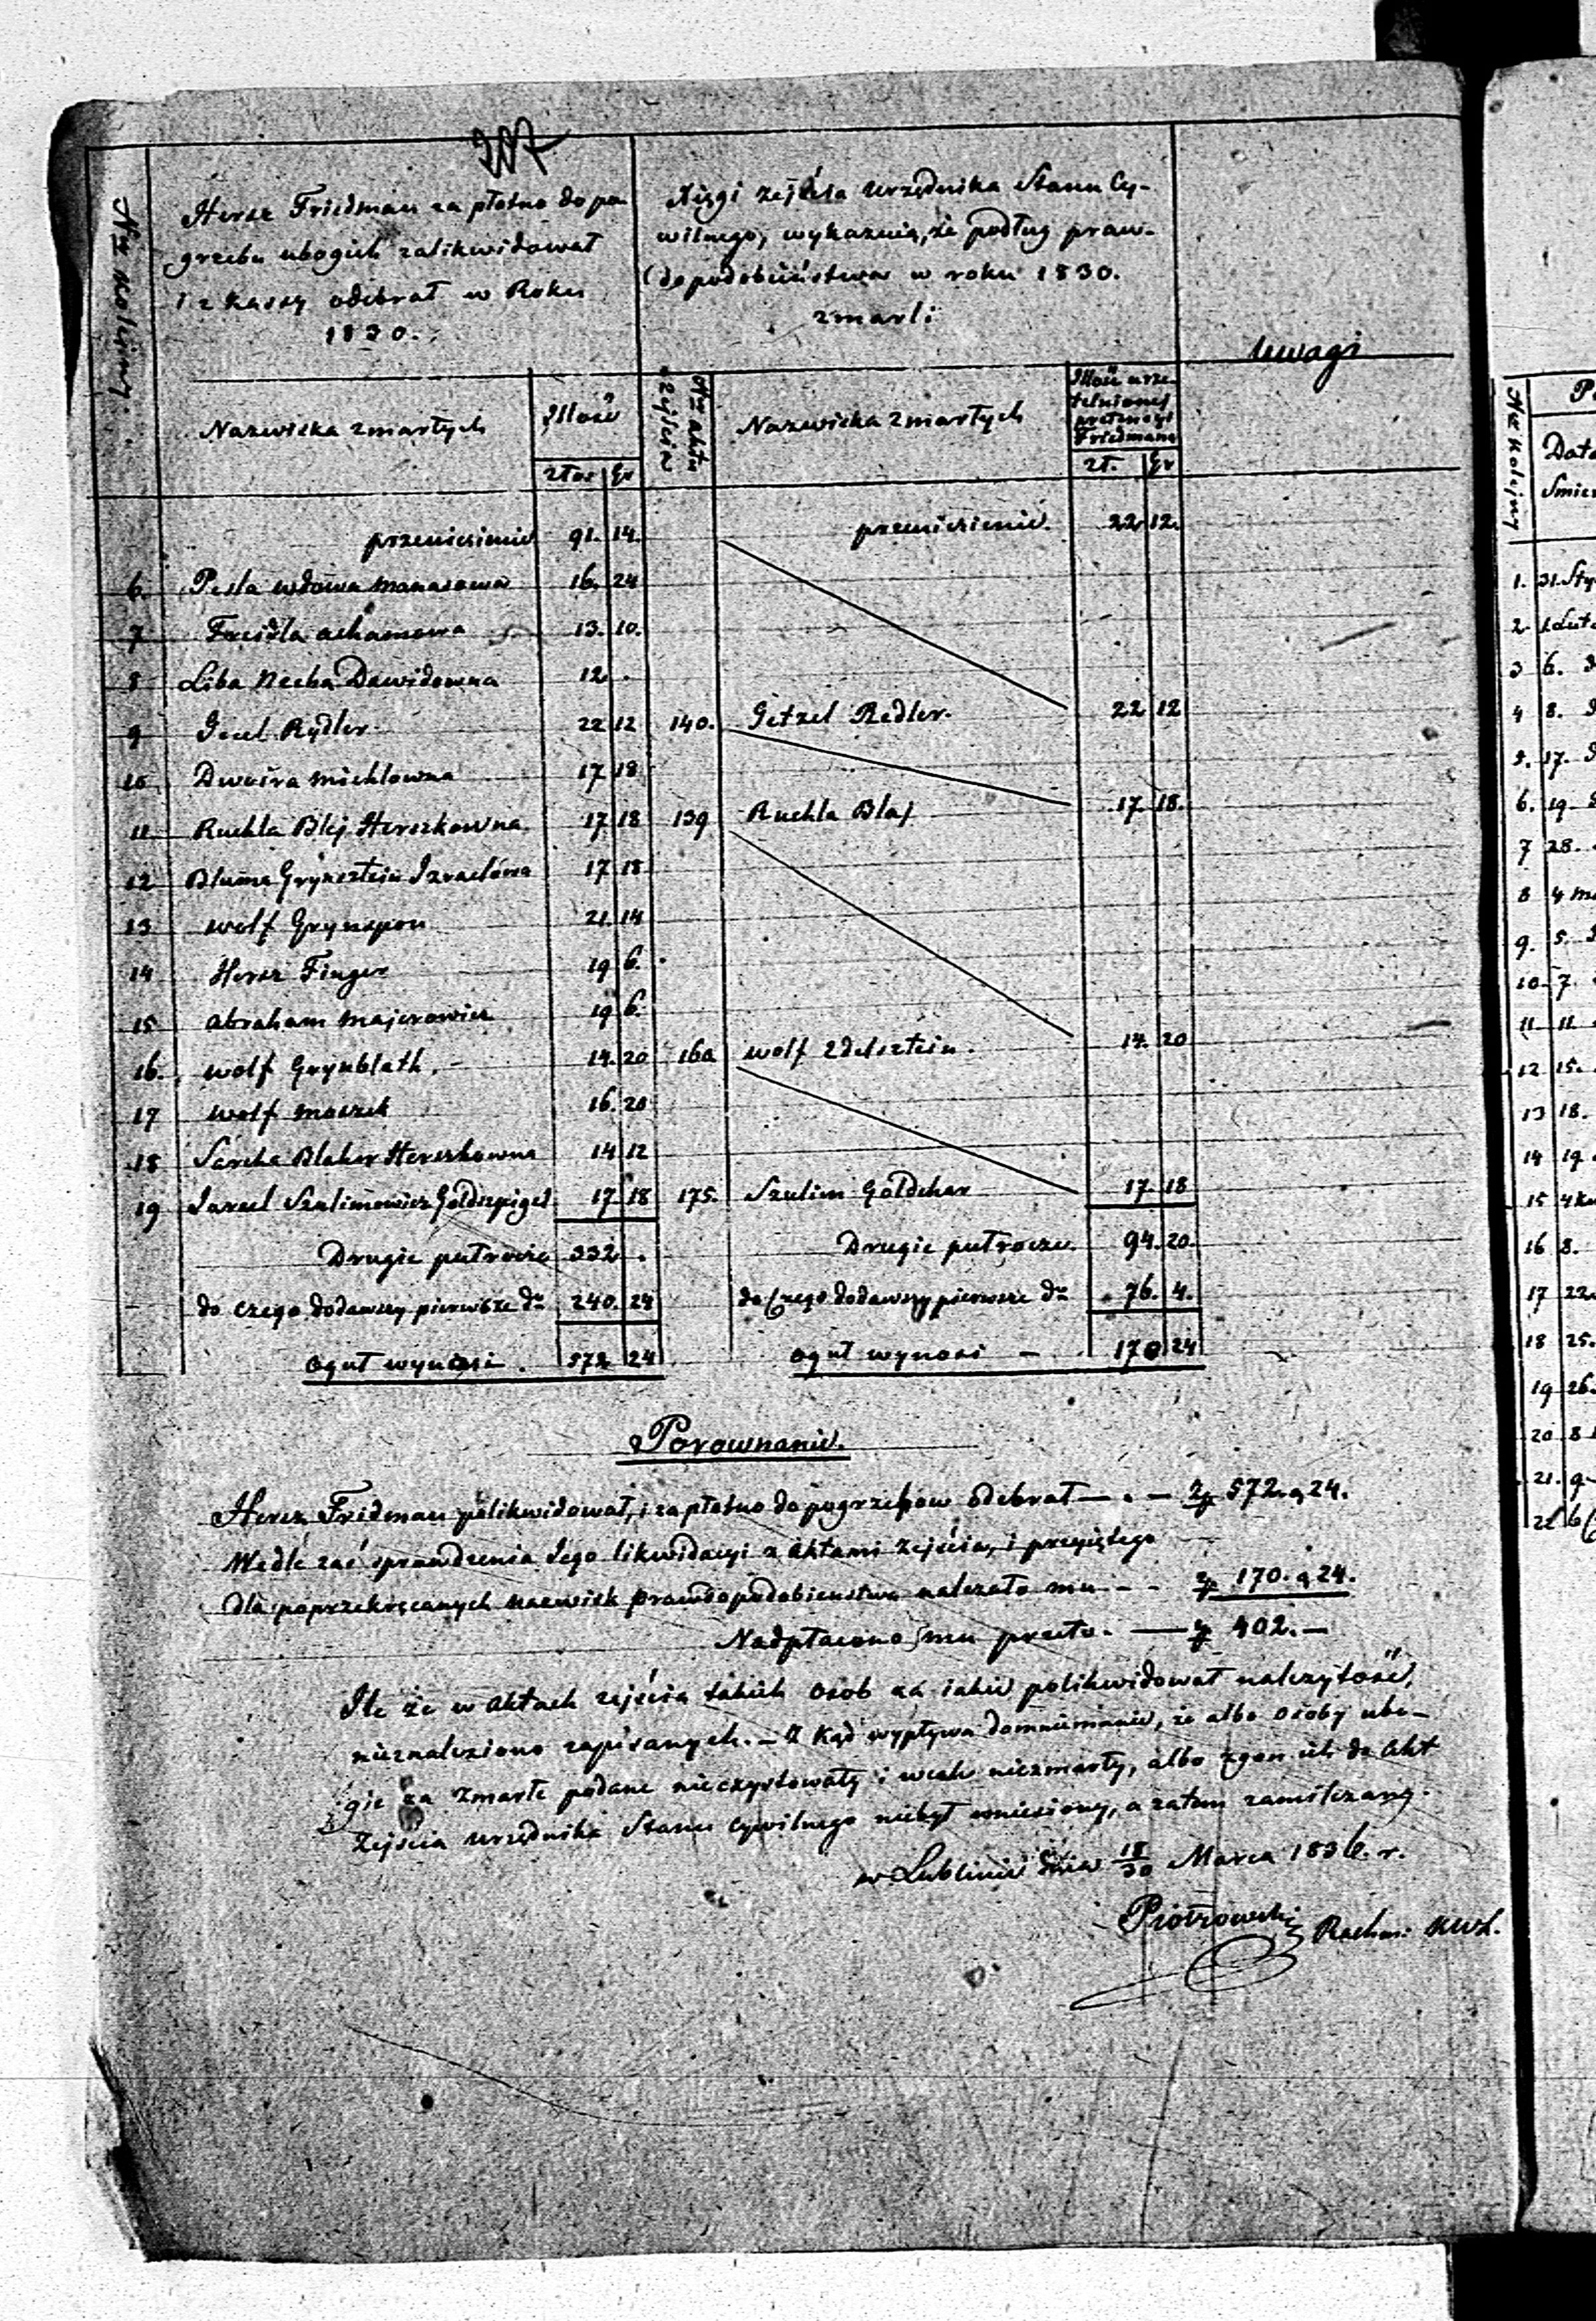 207
Nr kolejny
Hersz Friedman za płótno do po-
grzebu ubogich zalikwidował
i z Kassy odebrał w Roku
1830.
Xięgi zejścia urzędnika Stanu Cy-
wilnego, wykazuią, że podług praw-
dopodobieństwa w roku 1830.
zmarli
Uwagi
Nazwiska zmarłych
Illość
złot Gr
Nr aktu zejścia
Nazwiska zmarłych
Illość urze-
telnionej
pretensyi
Friedmana
zł. Gr
przeniesienie 91. 14. przeniesienie. 22 12.
6. Pesla wdowa Manasowa 16. 24
7 Freidla 13. 10.
8 Liba Necha Dawidowna 12 .
9 Gecel Rydler 22 12 140. Getzel Redler. 22 12
10 Dwoira Michlowna 17 18
11 Ruchla Blej Herszkowna 17 18 139 Ruchla Blaj 17 18.
12 Bluma Grynsztein Izraelowa 17 18
13 Wolf Grynszpon 21. 14
14 Hersz Finger 19 6.
15 Abraham Majerowicz 19 6.
16. Wolf Grynblath. 14. 20 160 Wolf Edelsztein. 14. 20
17 Wolf Moszek 16. 20
18 Sercha Blaker Herszkowna 14 12
19 Szulimowicz Goldszpigel 17 18 175. Szulim Goldchar 17 18
Drugie pułrocze 332 . Drugie pułrocze. 94. 20.
do czego dodawszy pierwsze do 240. 24 do czego dodawszy pierwsze do 76. 4.
Oguł wynosi. 572 24 Oguł wynosi — 170 24
Porownanie.
Hersz Fridman polikwidował, i za płótno do pogrzebów odebrał — . — zp 572. g 24.
Wedle zaś sprawdzenia Jego likwidacyi z Aktami zejścia, i przyiętego
dla poprzekręcanych nazwisk prawdopodobienstwa należało mu — - zp 170. g 24.
Nadpłacono mu przeto. — zp 402. —
Ile że w Aktach zejścia takich osob za iakie polikwidował należytość,
nieznaleziono zapisanych. — Z kąd wypływa domniemanie, że albo osoby ubo-
gie za zmarłe podane nieexystowały i wcale niezmarły, albo zgon ich do Akt
Zejścia urzędnika Stanu Cywilnego niebył wniesiony, a zatem zamilczany.
w Lublinie dnia 18/30 Marca 1836. r.
Piotrowski Rachm: KWL.
Nr kolejny
Data
1. 31. Sty
2. 1 Lut
3 6.
4 8.
5. 17.
6. 19
7 28.
8 4 Ma
9. 5.
10. 7.
11 11
12 15.
13 18.
14 19
15 4 Kw
16 8.
17 22.
18 25.
19 26.
20 8
21. 9
22 6